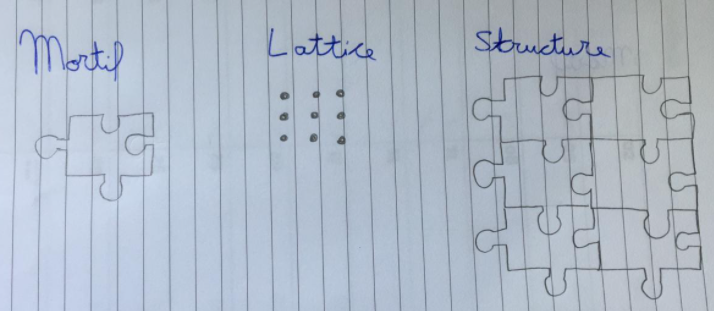 Mortif
Lattice
Structure